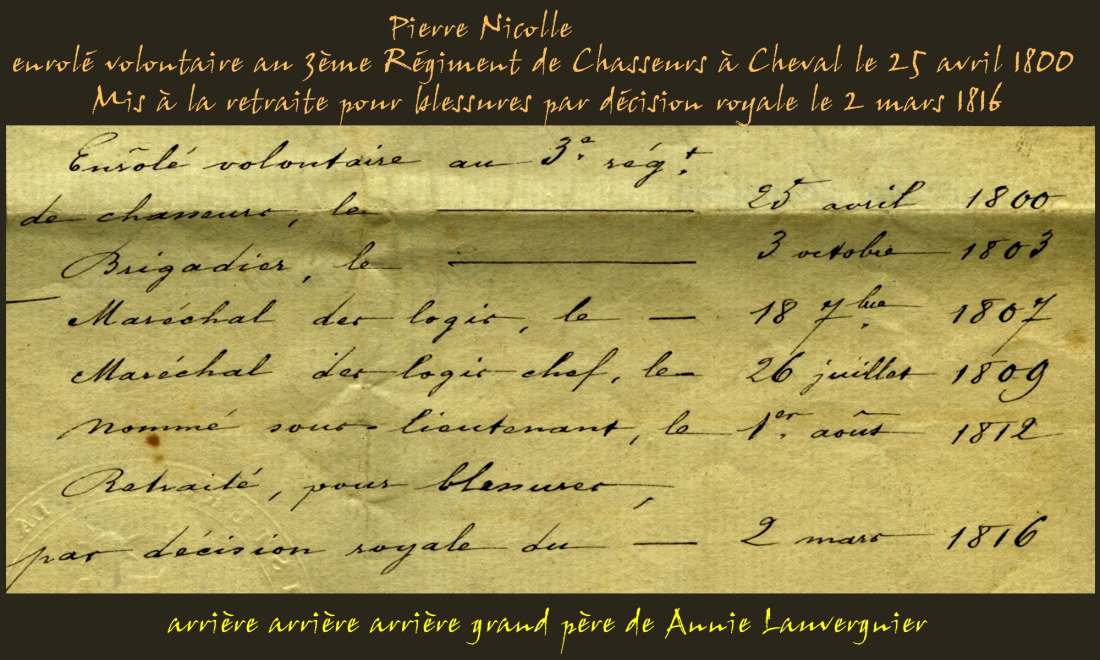 Pierre Nicolle
enrolé volontaire au 3ème Régiment de Chasseurs à Cheval le 25 avril 1800
Mis à la retraite pour blessures par décision royale le 2 mars 1816
Enrôlé volontaire au 3e. régt.
de chasseurs, le — 25 avril 1800
Brigadier, le — 3 octobre 1803
Maréchal des logis, le — 18 7bre. 1807
Maréchal des logis chef, le — 26 juillet 1809
nommé sous-lieutenant, le 1er. août 1812
Retraité, pour blessures,
par décision royale du — 2 mars 1816
arrière arrière arrière grand père de Annie Lauvergnier